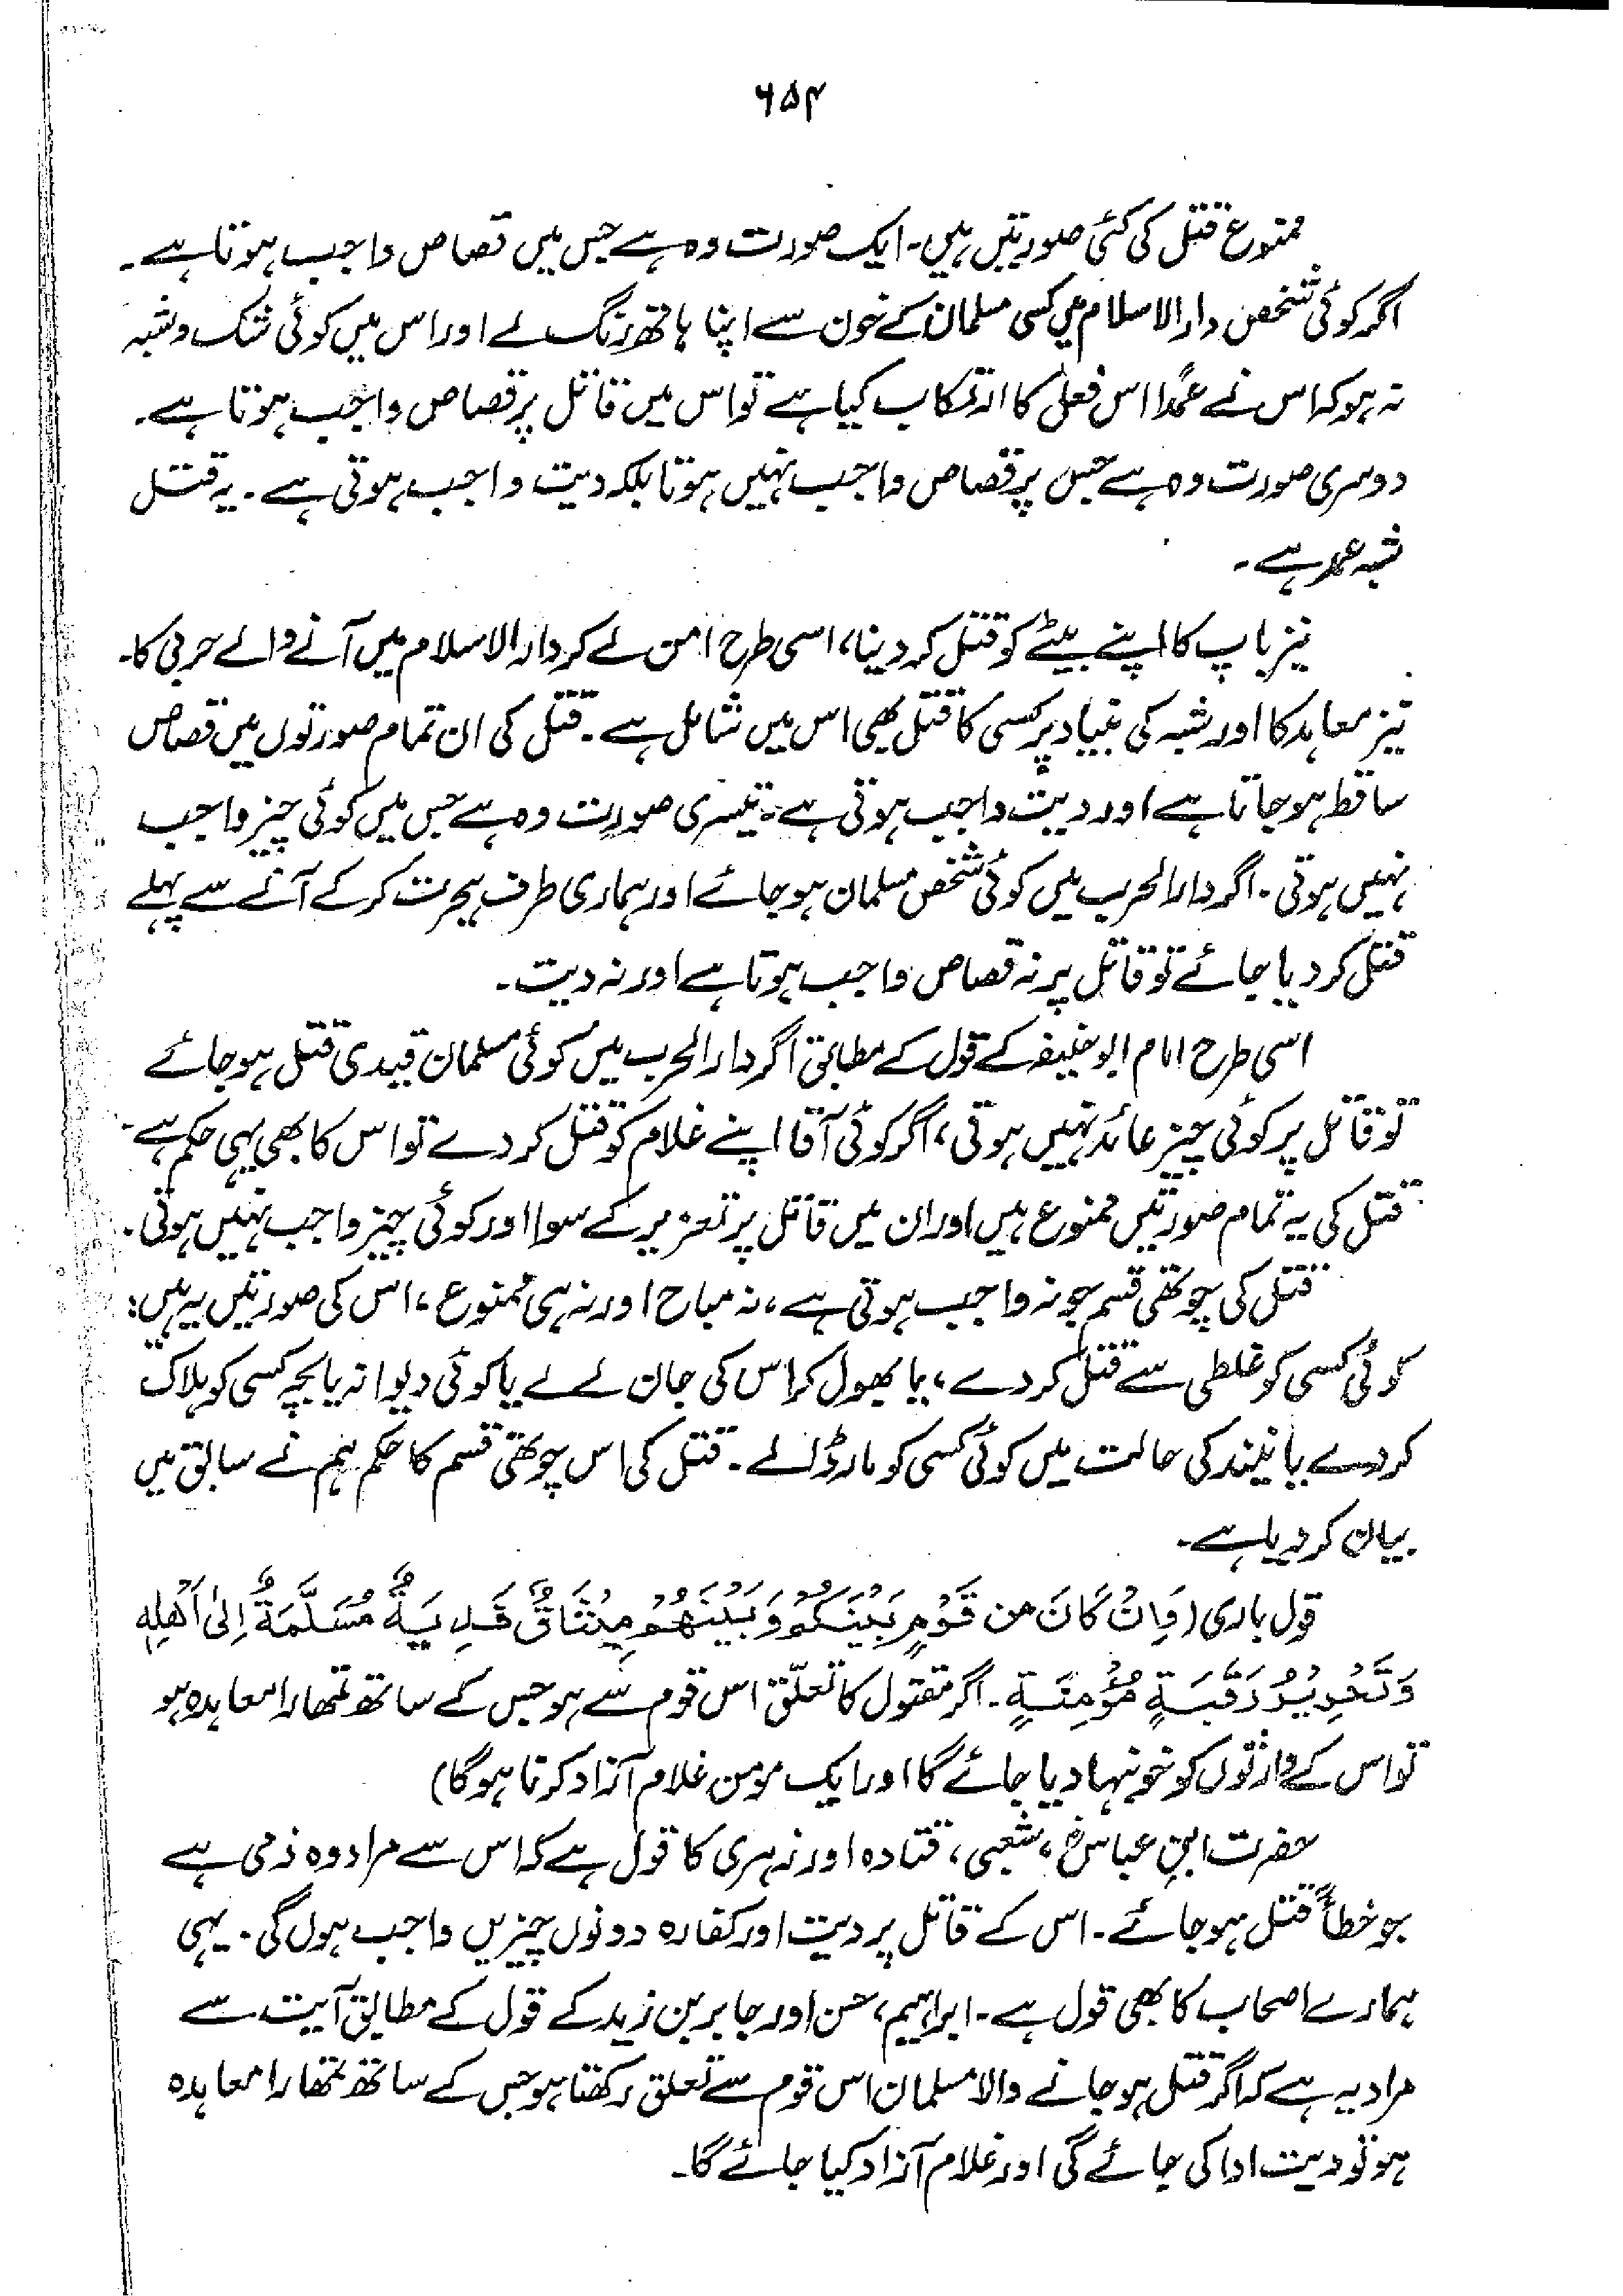 ۶۵۴
ممنوع قتل کی کئی صورتیں ہیں۔ ایک صورت وہ ہے جس میں قصاص واجب ہوتا ہے۔
اگر کوئی شخص دارالاسلام میں کسی مسلمان کے خون سے اپنا ہاتھ رنگ لے اور اس میں کوئی شک و شبہ
نہ ہو کہ اس نے عمداً اس فعل کا ارتکاب کیا ہے تو اس میں قاتل پر قصاص واجب ہوتا ہے۔
دوسری صورت وہ ہے جس پر قصاص واجب نہیں ہوتا بلکہ دیت واجب ہوتی ہے۔ یہ قتل
شبہ عمد ہے۔
نیز باپ کا اپنے بیٹے کو قتل کر دینا، اسی طرح امن لے کر دارالاسلام میں آنے والے حربی کا۔
نیز معاہد کا اور شبہ کی بنیاد پر کسی کا قتل بھی اس میں شامل ہے۔ قتل کی ان تمام صورتوں میں قصاص
ساقط ہو جاتا ہے اور دیت واجب ہوتی ہے۔ تیسری صورت وہ ہے جس میں کوئی چیز واجب
نہیں ہوتی۔ اگر دارالحرب میں کوئی شخص مسلمان ہو جائے اور ہماری طرف ہجرت کر کے آنے سے پہلے
قتل کر دیا جائے تو قاتل پر نہ قصاص واجب ہوتا ہے اور نہ دیت۔
اسی طرح امام ابوحنیفہ کے قول کے مطابق اگر دارالحرب میں کوئی مسلمان قیدی قتل ہو جائے
تو قاتل پر کوئی چیز عائد نہیں ہوتی، اگر کوئی آقا اپنے غلام کو قتل کر دے تو اس کا بھی یہی حکم ہے۔
قتل کی یہ تمام صورتیں ممنوع ہیں اور ان میں قاتل پر تعزیر کے سوا اور کوئی چیز واجب نہیں ہوتی۔
قتل کی چوتھی قسم جو نہ واجب ہوتی ہے، نہ مباح اور نہ ہی ممنوع، اس کی صورتیں یہ ہیں:
کوئی کسی کو غلطی سے قتل کر دے، یا بھول کر اس کی جان لے لے یا کوئی دیوانہ یا بچہ کسی کو ہلاک
کر دے یا نیند کی حالت میں کوئی کسی کو مار ڈالے۔ قتل کی اس چوتھی قسم کا حکم ہم نے سابق میں
بیان کر دیا ہے۔
قول باری (وَاِنْ كَانَ مِن قَوْمٍ بَيْنَكُمْ وَبَيْنَهُمْ مِيْثَاقٌ فَدِيَةٌ مُسَلَّمَةٌ اِلىٰ اَهْلِهٖ
وَتَحْرِيْرُ رَقَبَةٍ مُؤْمِنَةٍ۔ اگر مقتول کا تعلّق اس قوم سے ہو جس کے ساتھ تمھارا معاہدہ ہو
تو اس کے وارثوں کو خونبہا دیا جائے گا اور ایک مومن غلام آزاد کرنا ہوگا)
حضرت ابن عباسؓ، شعبی، قتادہ اور زہری کا قول ہے کہ اس سے مراد وہ ذمی ہے
جو خطأً قتل ہو جائے۔ اس کے قاتل پر دیت اور کفارہ دونوں چیزیں واجب ہوں گی۔ یہی
ہمارے اصحاب کا بھی قول ہے۔ ابراہیم، حسن اور جابر بن زید کے قول کے مطابق آیت سے
مراد یہ ہے کہ اگر قتل ہو جانے والا مسلمان اس قوم سے تعلق رکھتا ہو جس کے ساتھ تمھارا معاہدہ
ہو تو دیت ادا کی جائے گی اور غلام آزاد کیا جائے گا۔